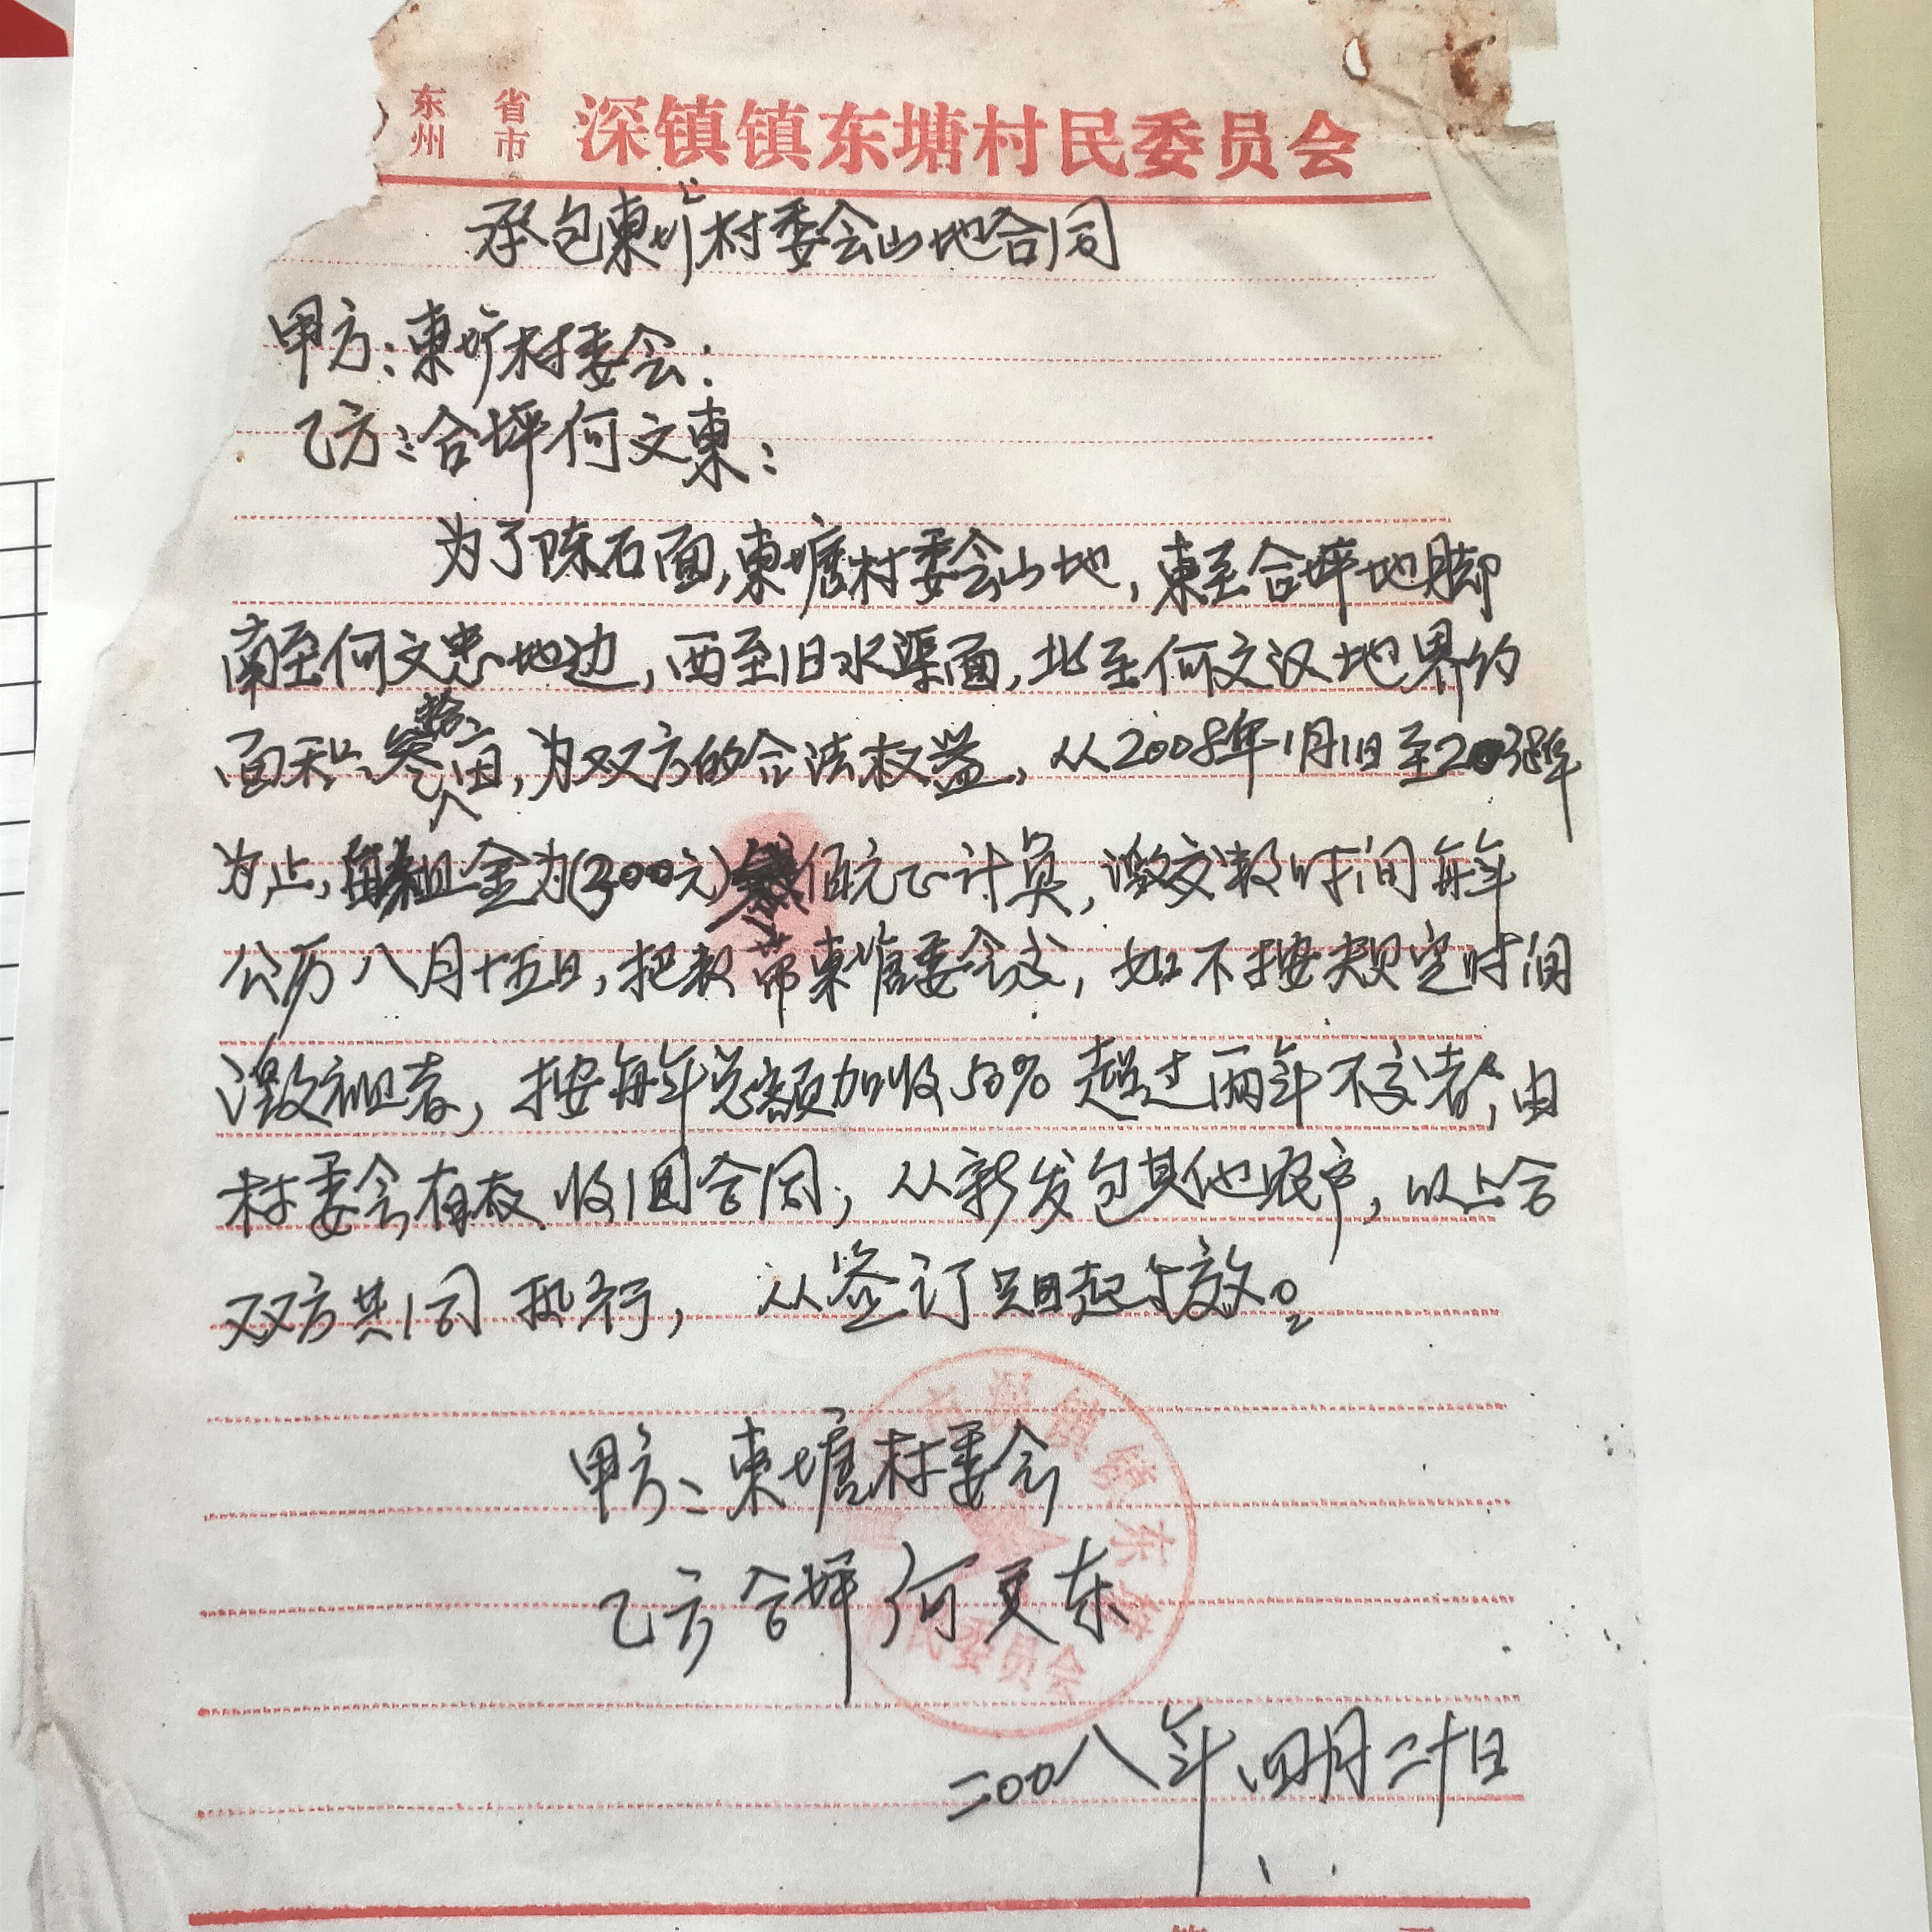 东 省
州 市
深镇镇东塘村民委员会
承包東圹村委会山地合同
甲方:東圹村委会:
乙方:合坪何文東:
为了陈石面,東塘村委会山地,東至合坪地脚
南至何文忠地边,西至旧水渠面,北至何文汉地界约
面积叁拾亩,为双方的合法权益,从2008年1月1日至2038年
为止,租金为(300元)佰元正计算,缴交款时间每年
公历八月十五日,把款带東塘委会交,如不按规定时间
缴租者,按每年总额加收50%超过两年不交者,由
村委会有权收回合同,从新发包其他农户,以上合
双方共同执行,从签订之日起生效。
甲方:東塘村委会
乙方合坪何文东
深镇镇东塘村民委员会
二00八年四月二十日